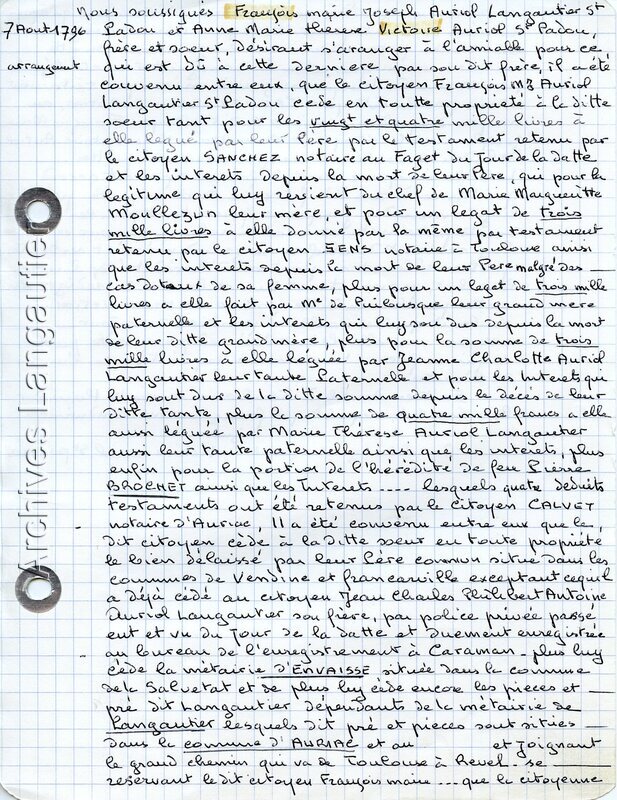 Nous soussignés François marie Joseph Auriol Langautier St
7 Aout 1796
arrangement
Padou et Anne Marie therese Victoire Auriol St Padou,
frère et soeur, désirant s'aranger à l'amiable pour ce
qui est dû à cette derniere par son dit frère, il a été
convenu entre eux, que le citoyen François Mie Auriol
Langautier St Padou cède en toutte propriété à la ditte
soeur tant pour les vingt et quatre mille livres à
elle legué par leur Père par le testament retenu par
le citoyen SANCHEZ notaire au Faget du Jour de la datte
et les interets depuis la mort de leur Père, qui pour la
legitime qui luy revient du chef de Marie Marguerite
Moullezun leur mère, et pour un legat de trois
mille livres à elle donné par la même par testament
retenu par le citoyen SENS notaire à Toulouse ainsi
que les interets depuis la mort de leur Pere malgré des
cas dotaux de sa femme, plus pour un legat de trois mille
livres a elle fait par Me de Puilousque leur grand mere
paternelle et les interets qui luy son dus depuis la mort
de leur ditte grand mère, plus pour la somme de trois
mille livres à elle léguée par Jeanne Charlotte Auriol
Langautier leur tante Paternelle et pour les Interets qui
luy sont dus de la ditte somme depuis le décès de leur
ditte tante, plus la somme de quatre mille francs a elle
aussi léguée par Marie Thérèse Auriol Langautier
aussi leur tante paternelle ainsi que les interets, plus
enfin pour la portion de l'hérédité de feu Pierre
BROCHET ainsi que les Interets .... lesquels quatre deduits
testaments ont été retenus par le citoyen CALVET
notaire d'Auriac, Il a été convenu entre eux que le
dit citoyen cède à la ditte soeur en toute propriété
le bien délaissé par leur Père commun situé dans les
communes de Vendine et francarville exceptant ce qu'il
a déjà cédé au citoyen Jean Charles Philibert Antoine
Auriol Langautier son frère, par police privée passé
ent et vu du Jour de la datte et Duement enregistrée
au bureau de l'enregistrement à Caraman. plus luy
cède la métairie D'ENVAISSE située dans la commune
de la Salvetat et de plus luy cède encore les pieces et
pré dit Langautier dépendants de la métairie de
Langautier lesquels dit pré et pieces sont sitiés
dans la commune d'AURIAC et au et Joignant
le grand chemin qui va de Toulouse à Revel. se
reservant le dit citoyen François marie .... que la citoyenne
Archives Langautier